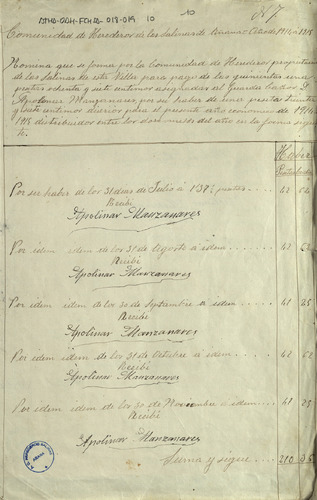 ATHA-DAH-FCHA-018-019 10
10
Nº 7
Comunidad de Herederos de las Salinas de Añana Año de 1914 á 1915
Nomina que se forma por la Comunidad de Herederos propietarios
de las Salinas de esta Villa para pago de las quinientas una
pesetas ochenta y siete centimos asignadas al Guarda
Apolinar Manzanares, por su haber de una peseta treinta
y siete centimos diarios para el presente año economico de 1914 á
1915 distribuidos entre los doce meses del año en la forma sigui
Haber
Por su haber de los 31 dias de Julio á 1'37½ pesetas 42 62
Recibí
Apolinar Manzanares
Por idem idem de los 31 de Agosto á idem 42 62
Recibí
Apolinar Manzanares
Por idem idem de los 30 de Septiembre á idem 41 25
Recibí
Apolinar Manzanares
Por idem idem de los 31 de Octubre á idem 42 62
Recibí
Apolinar Manzanares
Por idem idem de los 30 de Noviembre á idem 41 25
Recibí
Apolinar Manzanares
Suma y sigue 210 36